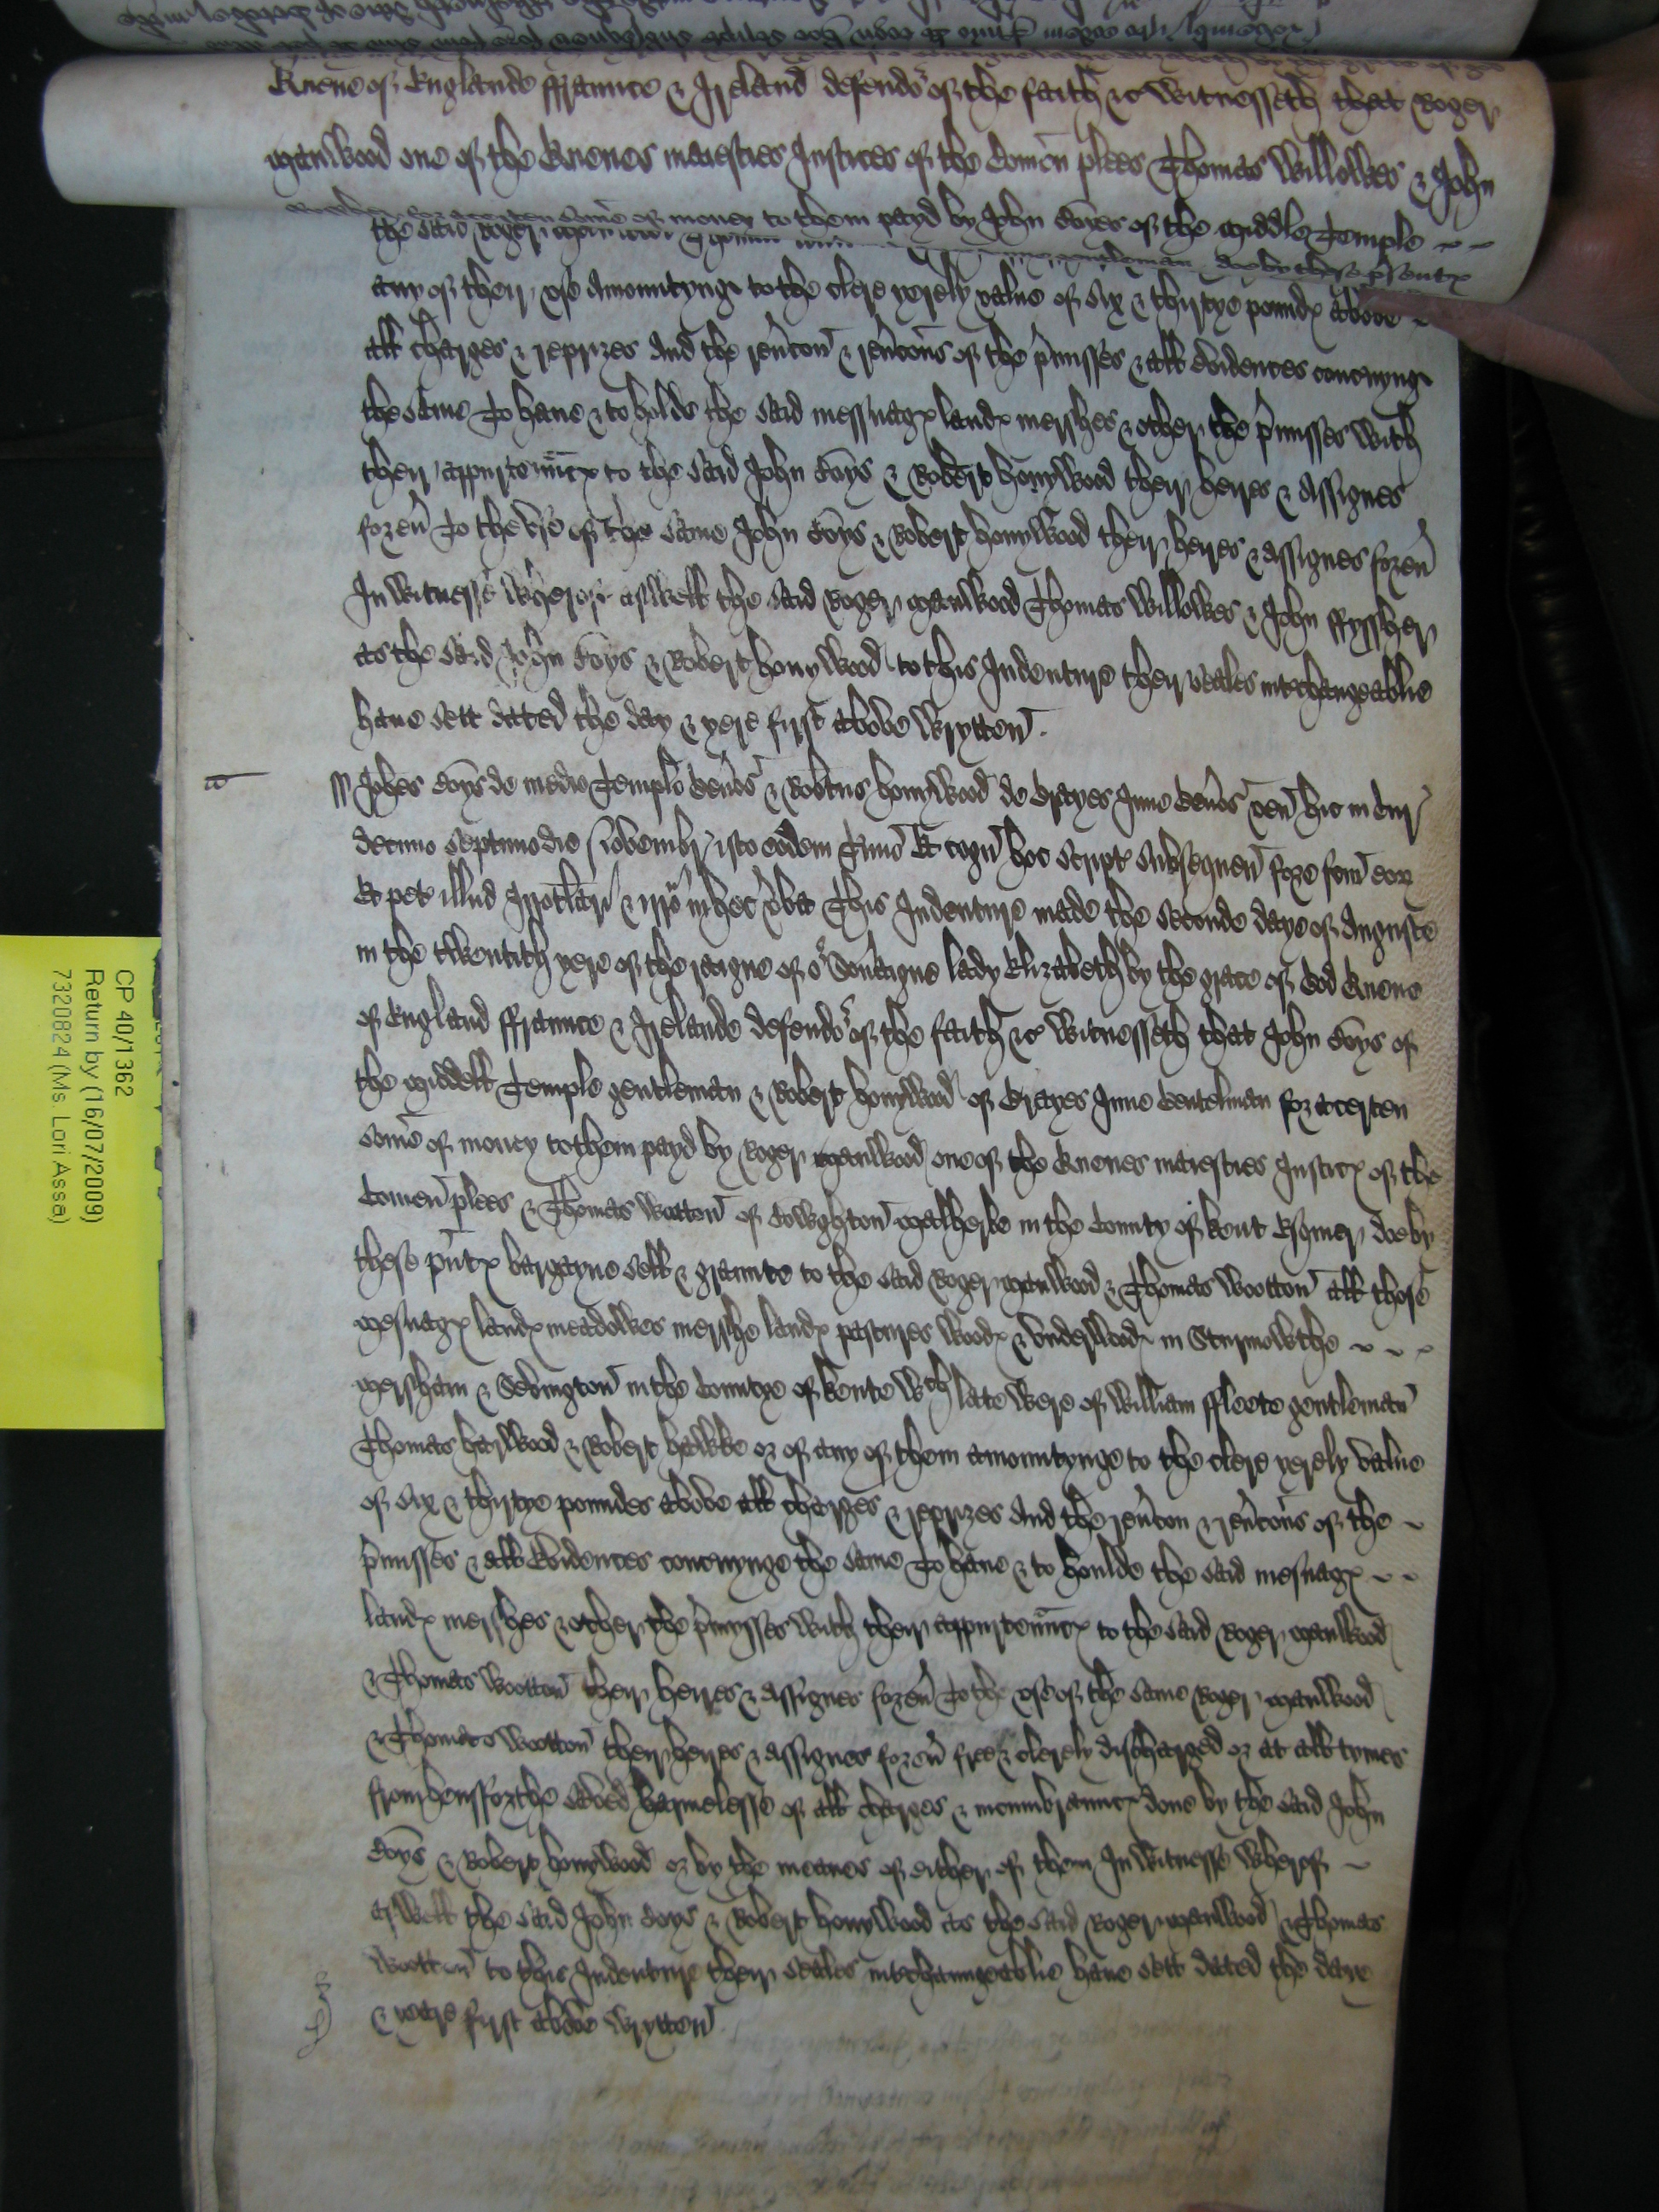 Quene of Englande ffraunce & Ireland defendor of the faith &c Witnesseth that Roger
Manwood one of the Quenes maiesties Justices of the Comen plees Thomas Willowes & John
for a certen some of money to them payd by John Boyes of the Middle Temple
the said Roger
gentleman doe by these presentes
any of them, or Amountynge to the clere yerely value of Six & thirtye poundes above
all charges & reprizes And the revercon & revercons of the premisses & all evidences concnynge
the same To have & to holde the said messuages landes mershes & other the premisses with
their appurtenncs to the said John Boys & Robert honywood their heires & Assignes
forevr To the use of the same John Boys & Robert honywood their heires & assignes forevr
In witnesse wherof aswell the said Roger Manwood Thomas Willowes & John ffyssher
as the said John Boys & Robert honywood to this Indenture their seales interchangeablie
have sett dated the day & yere first above wrytten.
Johes Boys de medio Templo genos & Robtus honywood de Grayes Inne genos ven hic in Cur
decimo septimo die Novembr isto eodem Timo Et cogn hoc script subsequen fore fcm eor
Et pet illud Irrotlari & irro in hec vba This Indenture made the seconde daye of Auguste
in the twentith yere of the raigne of or Sovraigne lady Elizabeth by the grace of God Quene
of England ffraunce & Irelande defendor of the faith &c Witnesseth that John Boys of
the Middell Temple gentleman & Robert honywood of Grayes Inne Gentelman for a certen
some of money to them payd by Roger Manwood one of the Quenes maiesties Justics of the
Comen plees & Thomas Wotton of Bowghton Malherbe in the County of Kent Esquier doe by
these pntes bargayne sell & graunte to the said Roger Manwood & Thomas Wootton all those
Mesuages landes meadowes mershe landes pastures woodes & underwoodes in Sturmowthe
Mersham & Sevington in the Countye of Kente wch late were of William ffleete gentleman
Thomas harwood & Robert hawke or of any of them amountynge to the clere yerely value
of Six & thirtye poundes above all charges & reprizes And the revrcon & revrcons of the
pmisses & all Evidences concnynge the same To have & to houlde the said mesuages
landes mershes & other the pmysses with their appurtenncs to the said Roger Manwood
& Thomas Wootton their heires & assignes forevr To the use of the same Roger Manwood
& Thomas Wootton their heires & assignes forevr free & clerely discharged or at all tymes
from hensforthe saved harmelesse of all charges & incumbraunces done by the said John
Boys & Robert honywood or by the meanes of either of them In Witnesse wherof
aswell the said John Boys & Robert honywood as the said Roger Manwood & Thomas
Wootton to this Indenture their seales interchaungeablie have sett dated the daye
& yeare first above wrytten
CP 40/1362
Return by (16/07/2009)
7320824 (Ms. Lori Assa)